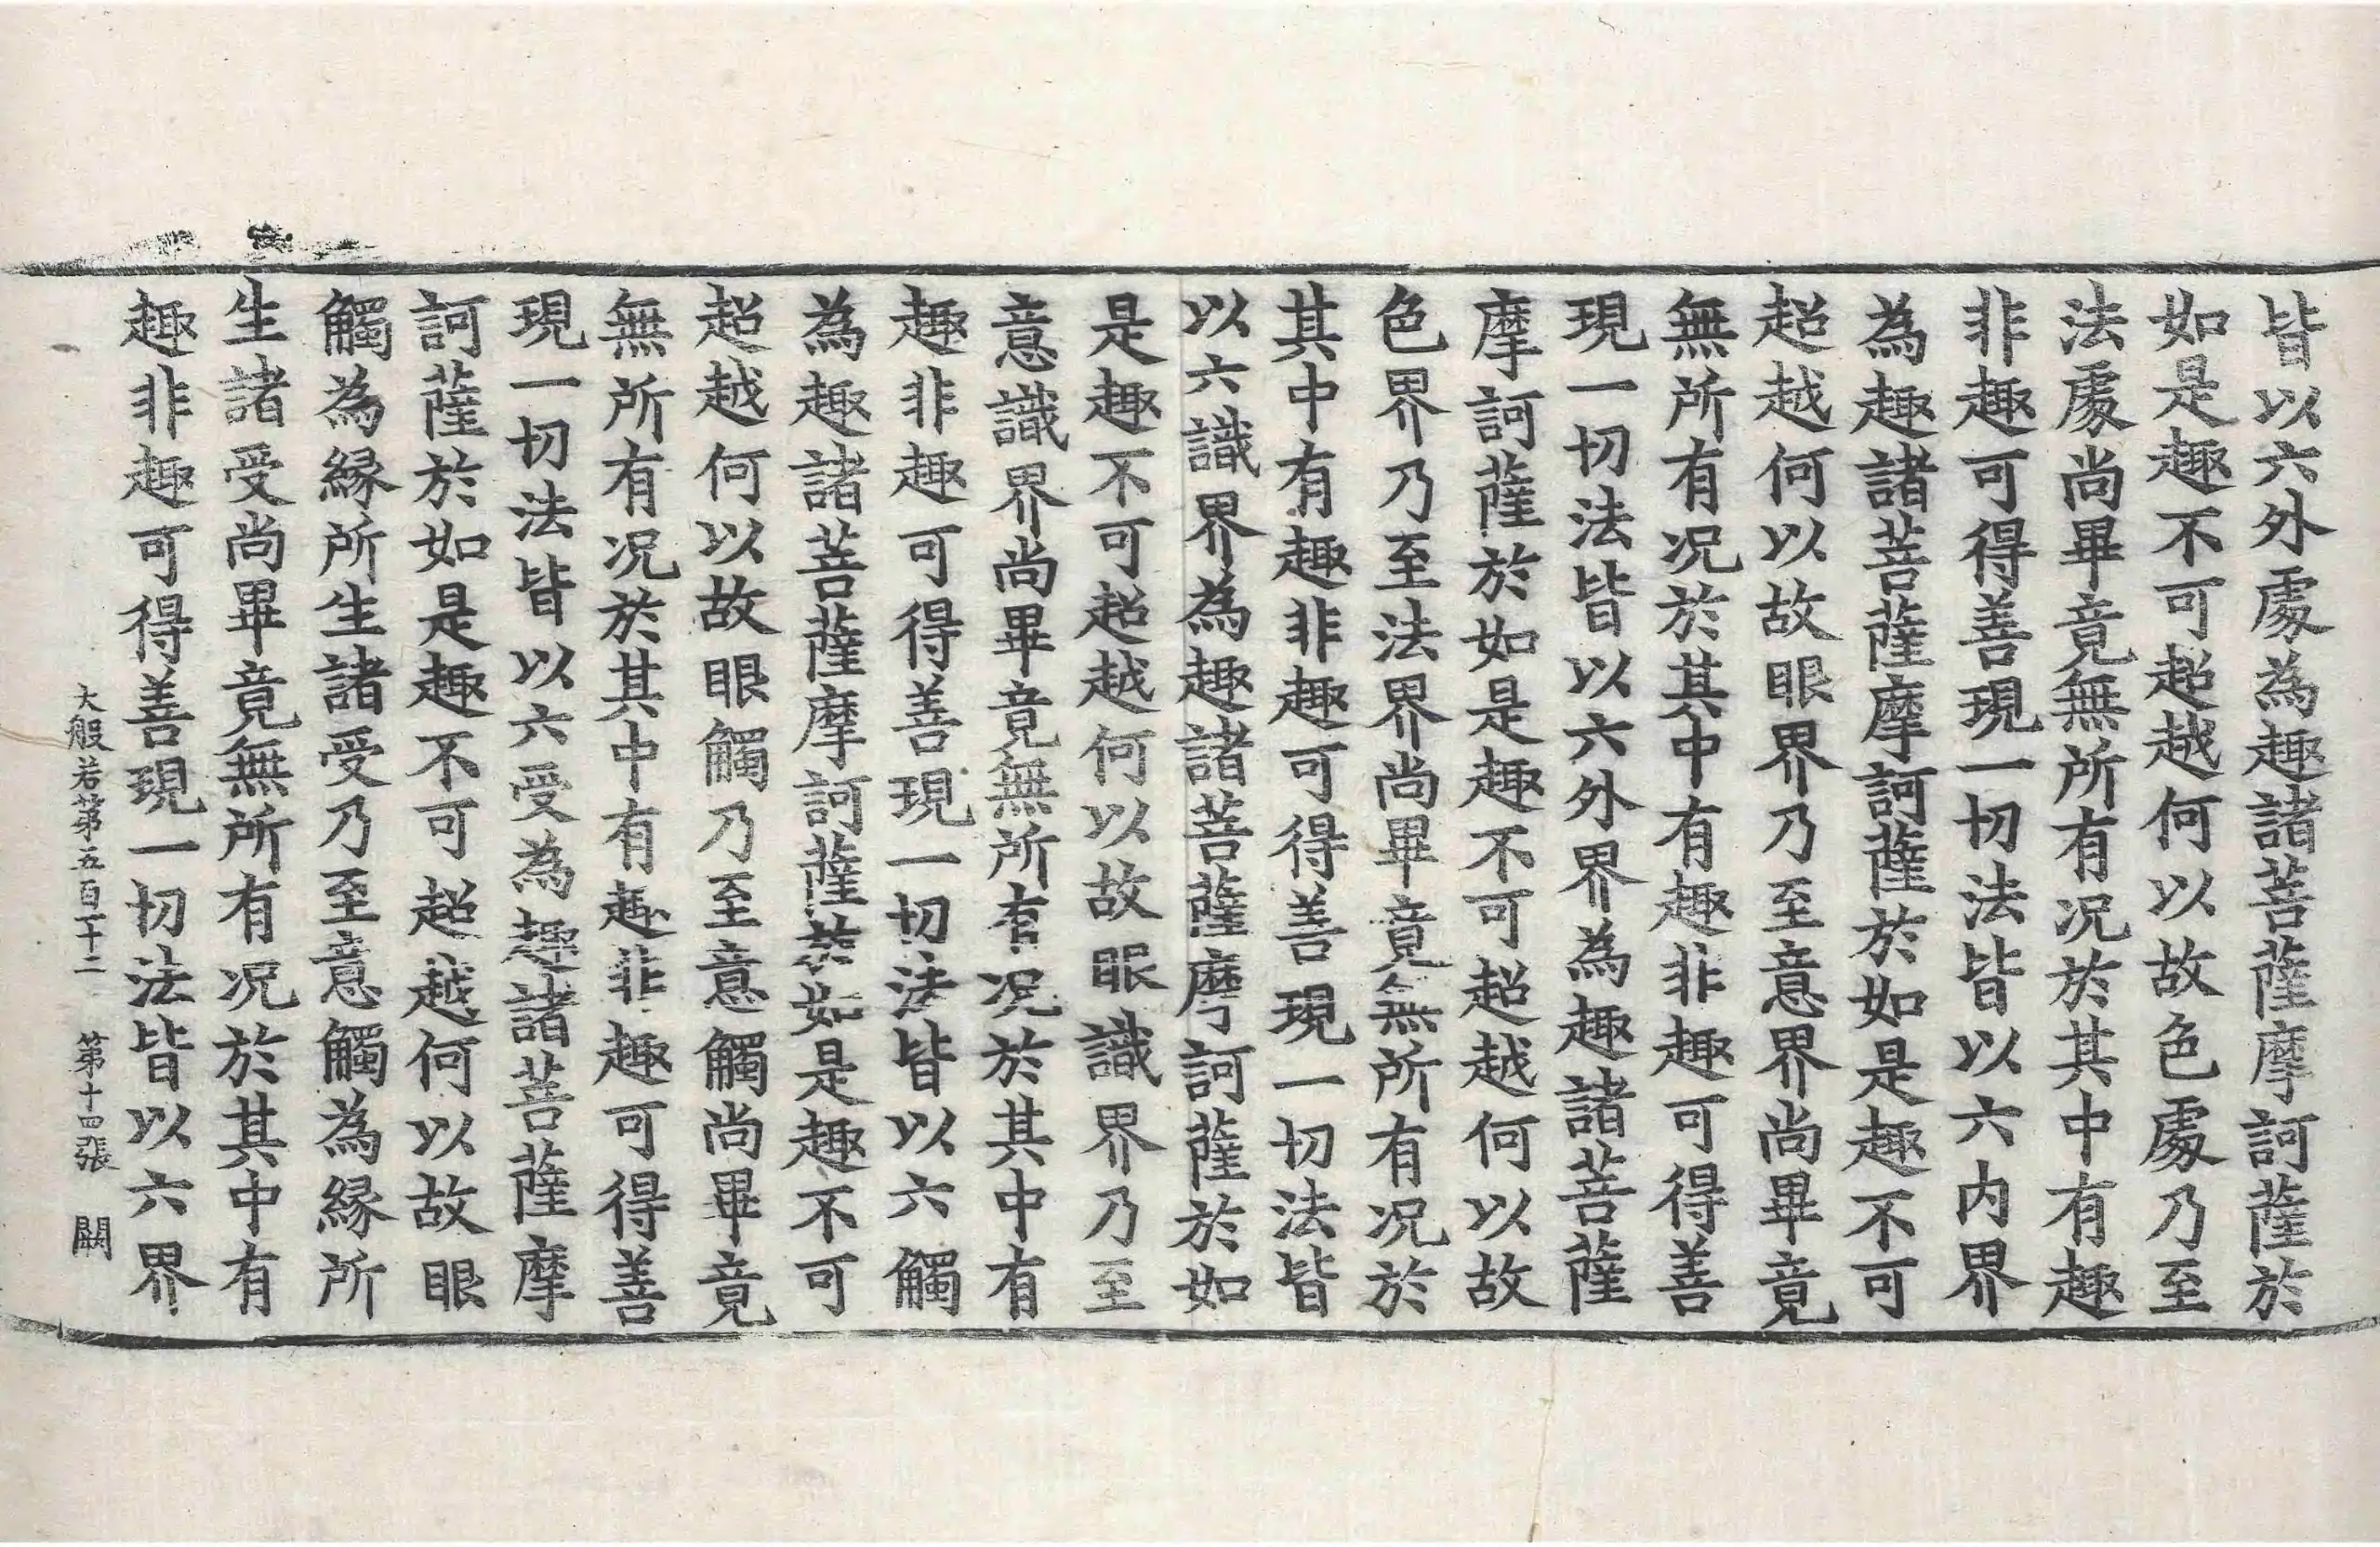 皆以六外處為趣諸菩薩摩訶薩於
如是趣不可超越何以故色處乃至
法處尚畢竟無所有况於其中有趣
非趣可得善現一切法皆以六内界
為趣諸菩薩摩訶薩於如是趣不可
超越何以故眼界乃至意界尚畢竟
無所有况於其中有趣非趣可得善
現一切法皆以六外界為趣諸菩薩
摩訶薩於如是趣不可超越何以故
色界乃至法界尚畢竟無所有况於
其中有趣非趣可得善現一切法皆
以六識界為趣諸菩薩摩訶薩於如
是趣不可超越何以故眼識界乃至
意識界尚畢竟無所有况於其中有
趣非趣可得善現一切法皆以六觸
為趣諸菩薩摩訶薩於如是趣不可
超越何以故眼觸乃至意觸尚畢竟
無所有况於其中有趣非趣可得善
現一切法皆以六受為趣諸菩薩摩
訶薩於如是趣不可超越何以故眼
觸為緣所生諸受乃至意觸為緣所
生諸受尚畢竟無所有况於其中有
趣非趣可得善現一切法皆以六界
大般若第五百十二 第十四張 闕